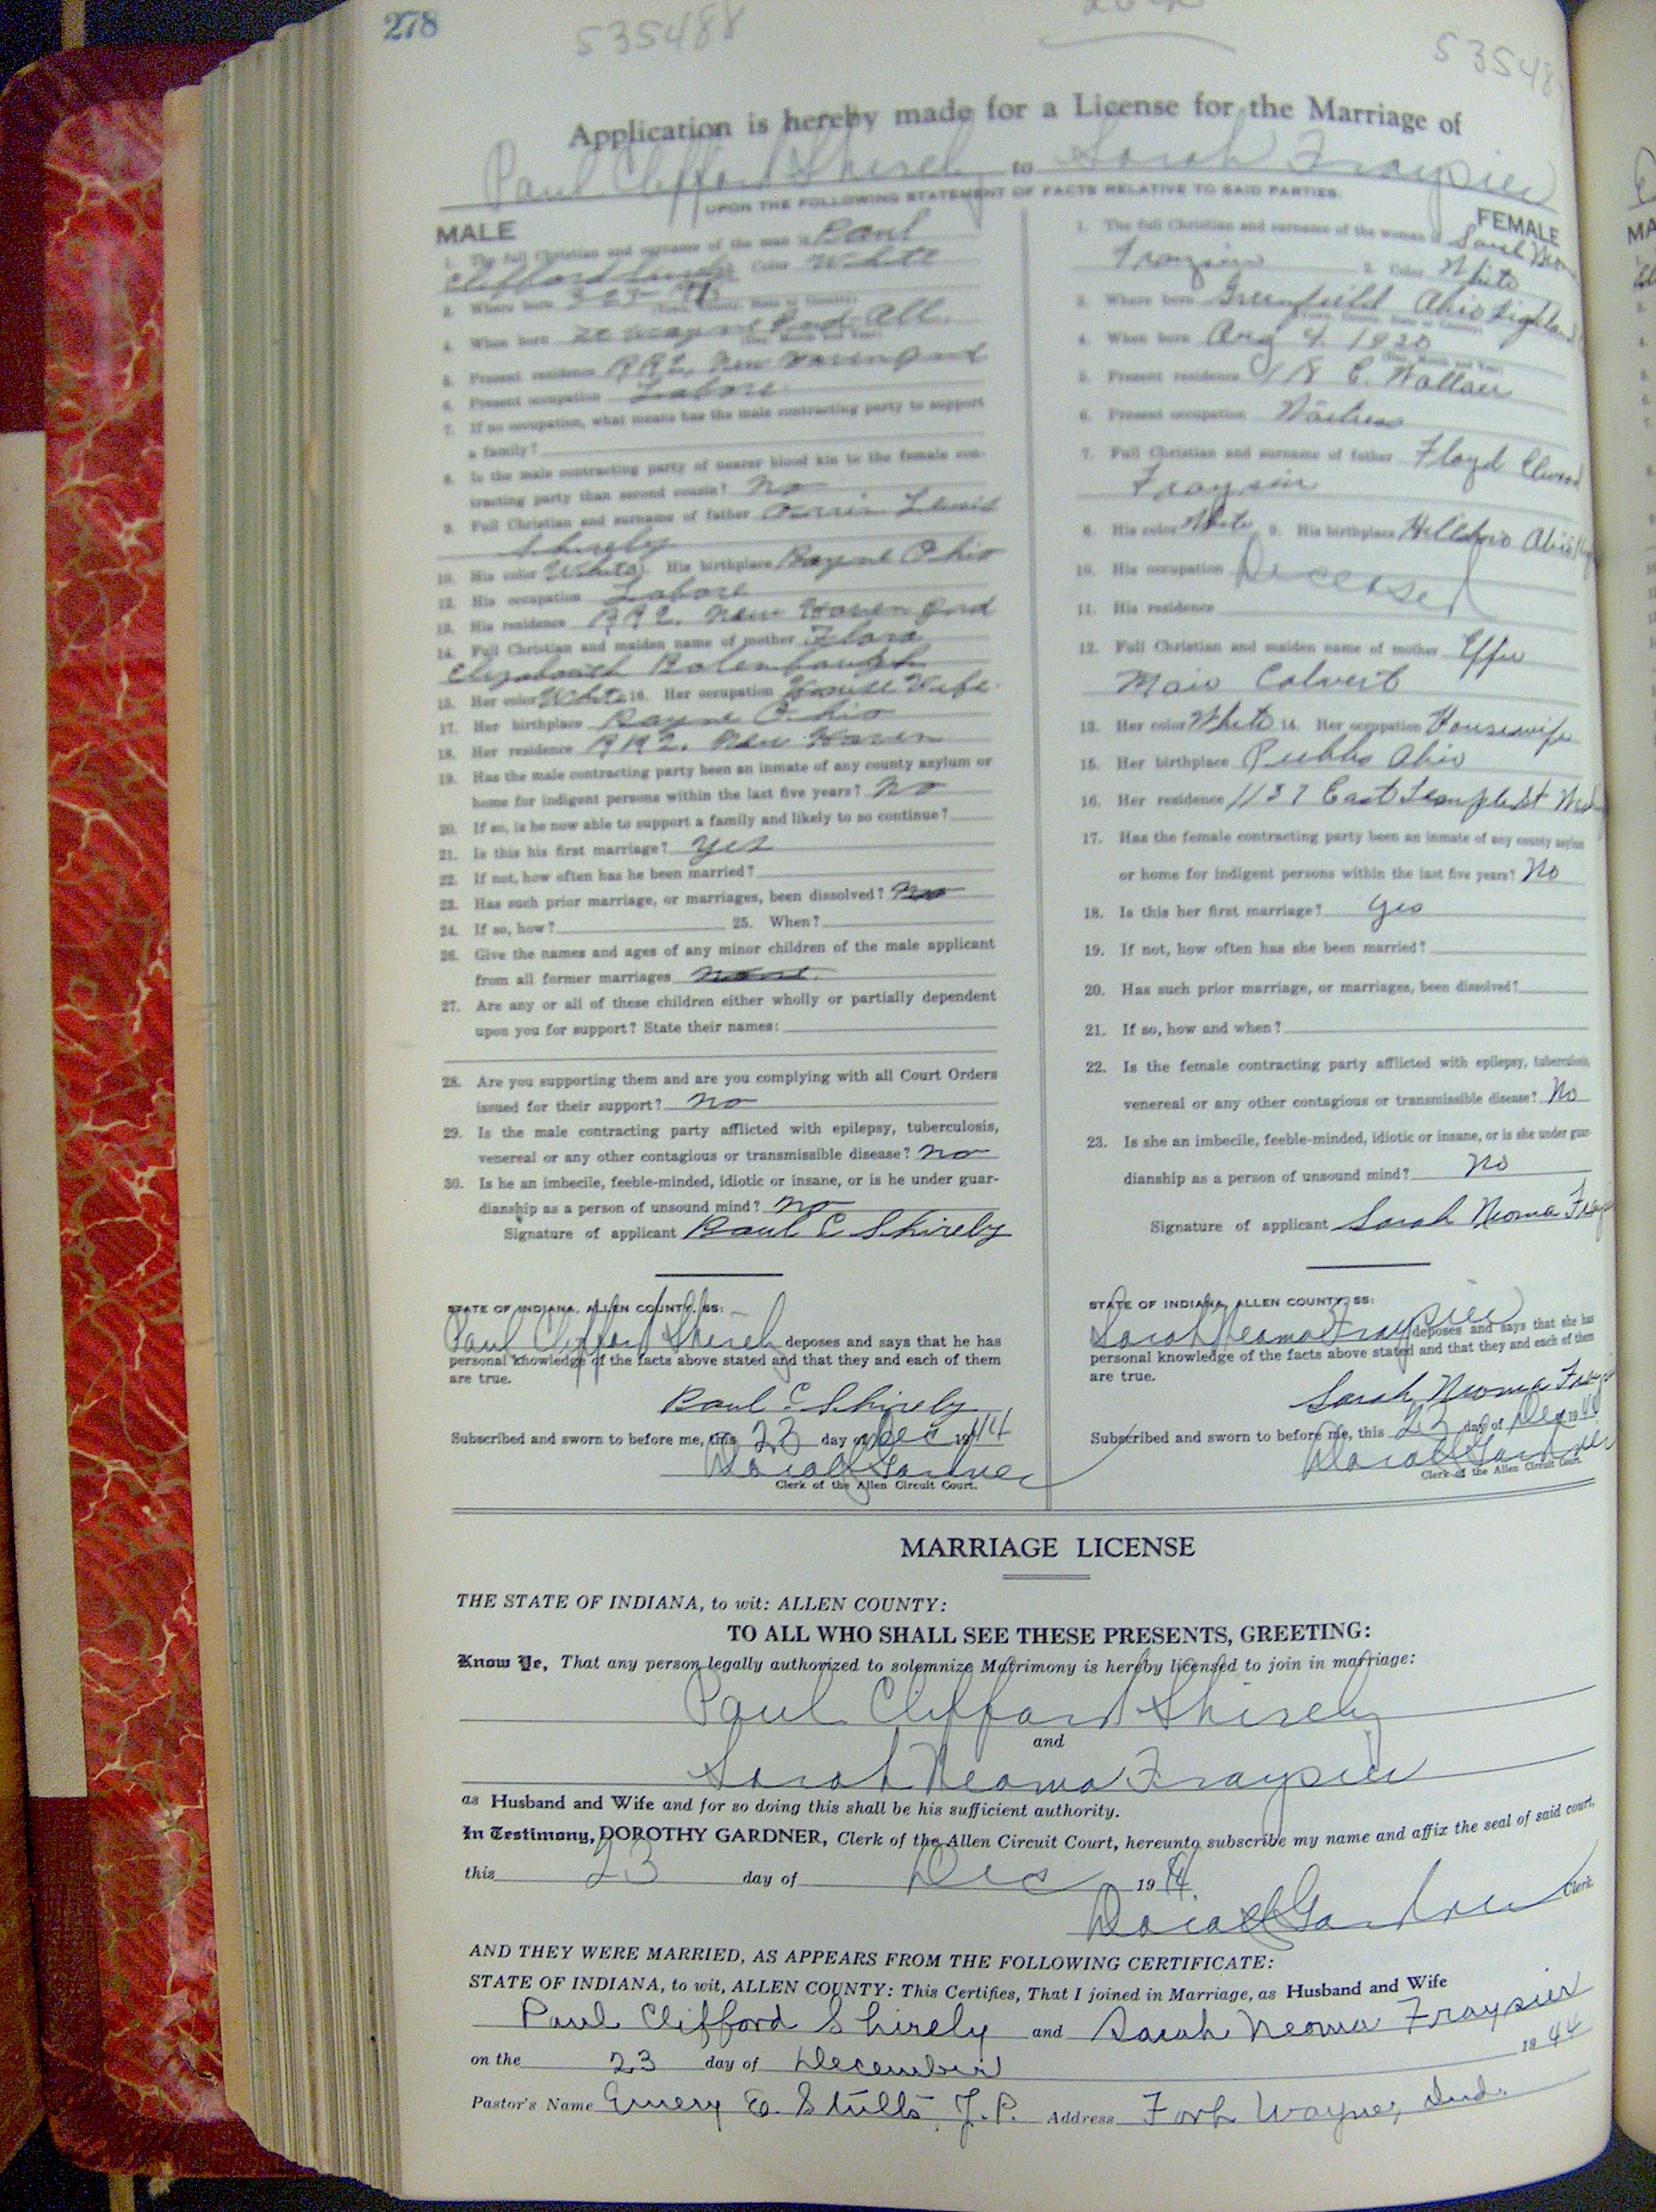 278
535488
5 3548
Application is hereby made for a License for the Marriage of
Paul Clifford Shirely to Sarah Fraysier
UPON THE FOLLOWING STATEMENT OF FACTS RELATIVE TO SAID PARTIES.
MALE
1. The full Christian and surname of the man is Paul
Clifford Color White
3. Where born (Town, County, State or Country)
4. When born Ft Wayne Ind All. (Day, Month and Year)
5. Present residence RR2, New Haven Ind
6. Present occupation Labore
7. If no occupation, what means has the male contracting party to support
a family?
8. Is the male contracting party of nearer blood kin to the female con-
tracting party than second cousin? No
9. Full Christian and surname of father Lewis
Shirely
10. His color White His birthplace Payne Ohio
12. His occupation Labore
13. His residence RR2. New Haven Ind
14. Full Christian and maiden name of mother Flora
Elizabeath
15. Her color White 16. Her occupation House Wife
17. Her birthplace Payne Ohio
18. Her residence RR2. New Haven
19. Has the male contracting party been an inmate of any county asylum or
home for indigent persons within the last five years? No
20. If so, is he now able to support a family and likely to so continue?
21. Is this his first marriage? Yes
22. If not, how often has he been married?
23. Has such prior marriage, or marriages, been dissolved? No
24. If so, how? 25. When?
26. Give the names and ages of any minor children of the male applicant
from all former marriages None.
27. Are any or all of these children either wholly or partially dependent
upon you for support? State their names:
28. Are you supporting them and are you complying with all Court Orders
issued for their support? No
29. Is the male contracting party afflicted with epilepsy, tuberculosis,
venereal or any other contagious or transmissible disease? No
30. Is he an imbecile, feeble-minded, idiotic or insane, or is he under guar-
dianship as a person of unsound mind? No
Signature of applicant Paul C Shirely
STATE OF INDIANA, ALLEN COUNTY, SS:
Paul Clifford Shirely deposes and says that he has
personal knowledge of the facts above stated and that they and each of them
are true.
Paul C Shirely
Subscribed and sworn to before me, this 23 day of Dec 1944
Gardner
Clerk of the Allen Circuit Court.
FEMALE
1. The full Christian and surname of the woman is Sarah
Fraysier 2. Color White
3. Where born Greenfield Ohio Highland (Town, County, State or Country)
4. When born Aug 4. 1920 (Day, Month and Year)
5. Present residence 118 E. Wallace
6. Present occupation Waitress
7. Full Christian and surname of father Floyd Elwood
Fraysier
8. His color White 9. His birthplace Hillsboro Ohio
10. His occupation Deceased
11. His residence
12. Full Christian and maiden name of mother Effie
Maie Calvert
13. Her color White 14. Her occupation Housewife
15. Her birthplace Ohio
16. Her residence 1137 East Temple St
17. Has the female contracting party been an inmate of any county asylum
or home for indigent persons within the last five years? No
18. Is this her first marriage? Yes
19. If not, how often has she been married?
20. Has such prior marriage, or marriages, been dissolved?
21. If so, how and when?
22. Is the female contracting party afflicted with epilepsy, tuberculosis,
venereal or any other contagious or transmissible disease? No
23. Is she an imbecile, feeble-minded, idiotic or insane, or is she under guar-
dianship as a person of unsound mind? No
Signature of applicant Sarah Neoma
STATE OF INDIANA, ALLEN COUNTY, SS:
Sarah Neoma Fraysier deposes and says that she has
personal knowledge of the facts above stated and that they and each of them
are true.
Sarah Neoma
Subscribed and sworn to before me, this 23 day of Dec 1944
Gardner
Clerk of the Allen Circuit Court.
MARRIAGE LICENSE
THE STATE OF INDIANA, to wit: ALLEN COUNTY:
TO ALL WHO SHALL SEE THESE PRESENTS, GREETING:
Know Ye, That any person legally authorized to solemnize Matrimony is hereby licensed to join in marriage:
Paul Clifford Shirely
and
Sarah Neoma Fraysier
as Husband and Wife and for so doing this shall be his sufficient authority.
In Testimony, DOROTHY GARDNER, Clerk of the Allen Circuit Court, hereunto subscribe my name and affix the seal of said court,
this 23 day of Dec 1944.
Gardner Clerk
AND THEY WERE MARRIED, AS APPEARS FROM THE FOLLOWING CERTIFICATE:
STATE OF INDIANA, to wit, ALLEN COUNTY: This Certifies, That I joined in Marriage, as Husband and Wife
Paul Clifford Shirely and Sarah Neoma Fraysier
on the 23 day of December 1944
Pastor's Name Emery E. Stults, J.P. Address Fort Wayne, Ind.